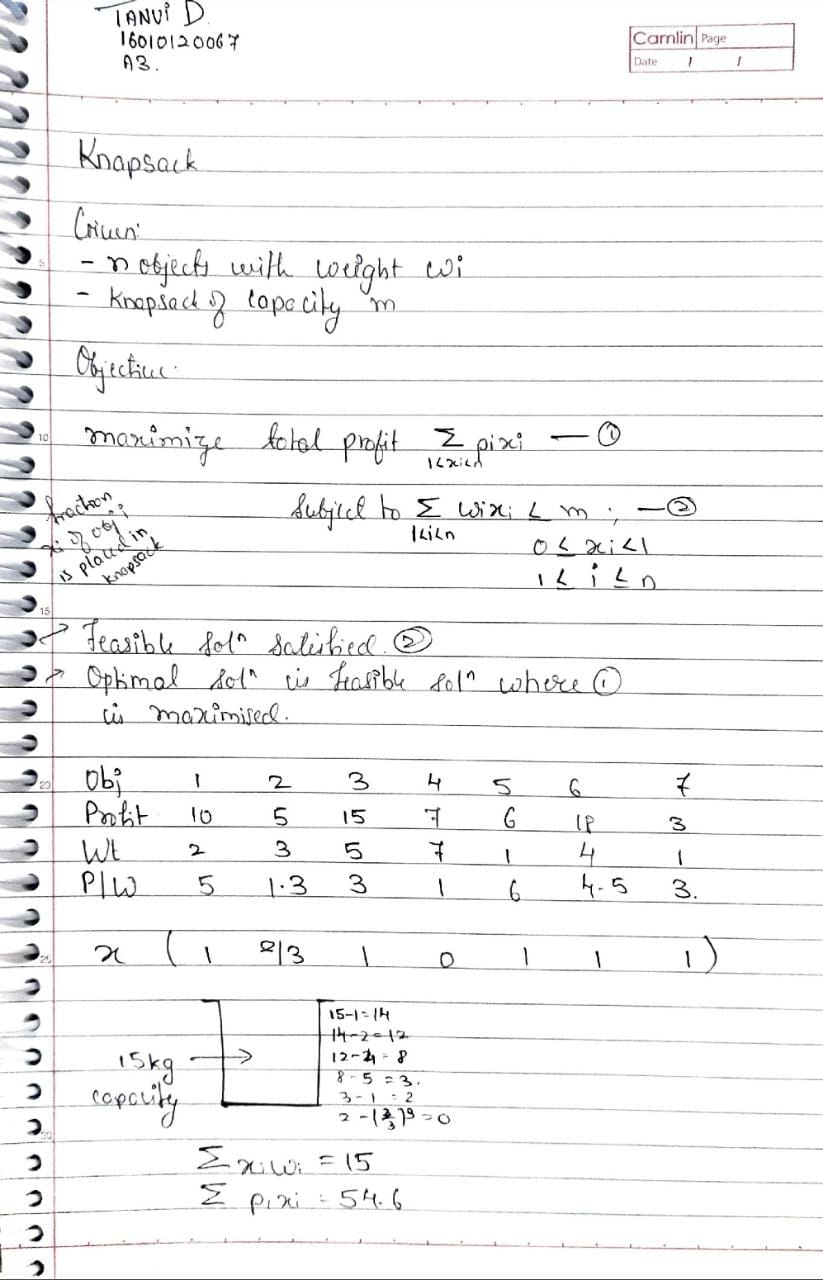 TANVI D
16010120067
A3.
Camlin Page
Date / /
Knapsack
Given:
5
- n objects with weight wi
- Knapsack of capacity m
Objective:
10
maximize total profit Σ pixi — ①
1<xi<n
Subject to Σ wixi < m ; —②
1<i<n
0 ≤ xi<1
1 ≤ i ≤ n
fraction
xi of obj i
is placed in
knapsack
15
→ Feasible solⁿ satisfied. ②
→ Optimal solⁿ is feasible solⁿ where ①
is maximised.
20
Obj 1 2 3 4 5 6 7
Profit 10 5 15 7 6 18 3
Wt 2 3 5 7 1 4 1
P/W 5 1.3 3 1 6 4.5 3.
25
x ( 1 2/3 1 0 1 1 1 )
15kg →
capacity
15-1=14
14-2=12
12-4=8
8-5=3.
3-1=2
2-(2/3)3=0
30
Σ xiwi = 15
Σ pixi = 54.6